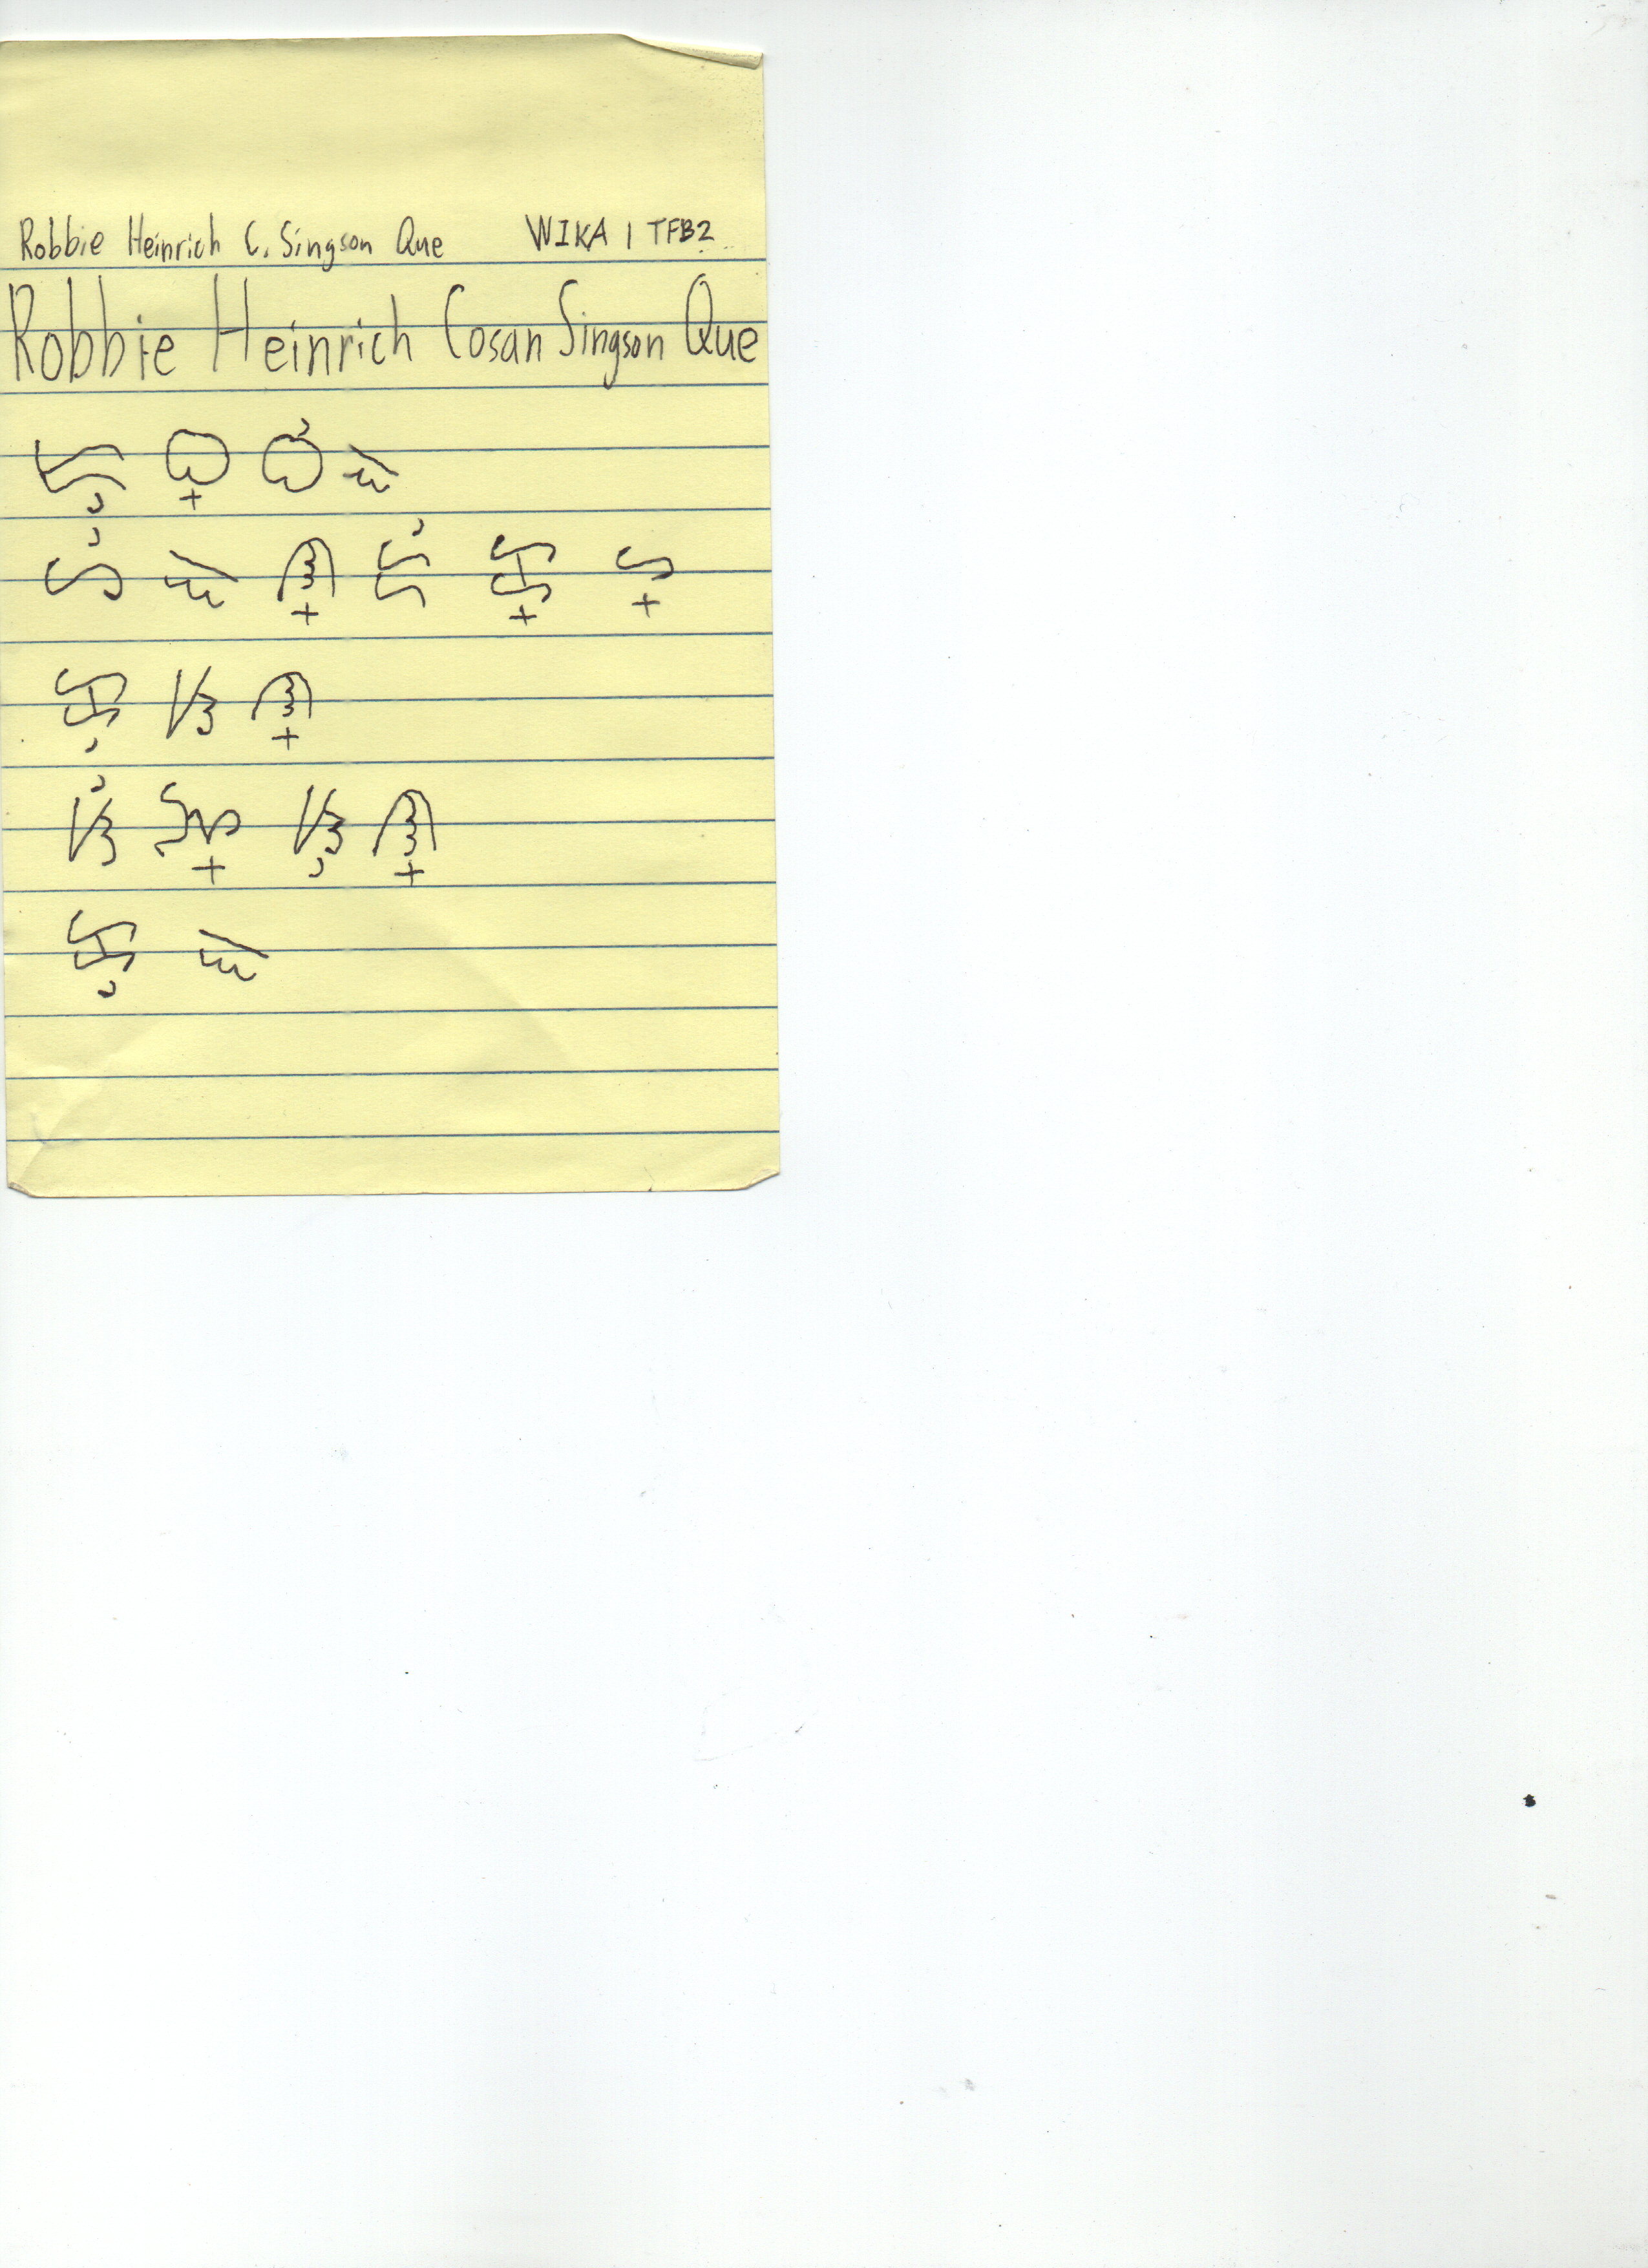 Robbie Heinrich C. Singson Que WIKA 1 TFB2
Robbie Heinrich Cosan Singson Que
ᜇᜓ ᜊ᜔ ᜊᜒ ᜁ
ᜑᜒ ᜁ ᜈ᜔ ᜇᜒ ᜃ᜔ ᜑ᜔
ᜃᜓ ᜐ ᜈ᜔
ᜐᜒ ᜅ᜔ ᜐᜓ ᜈ᜔
ᜃᜓ ᜁ